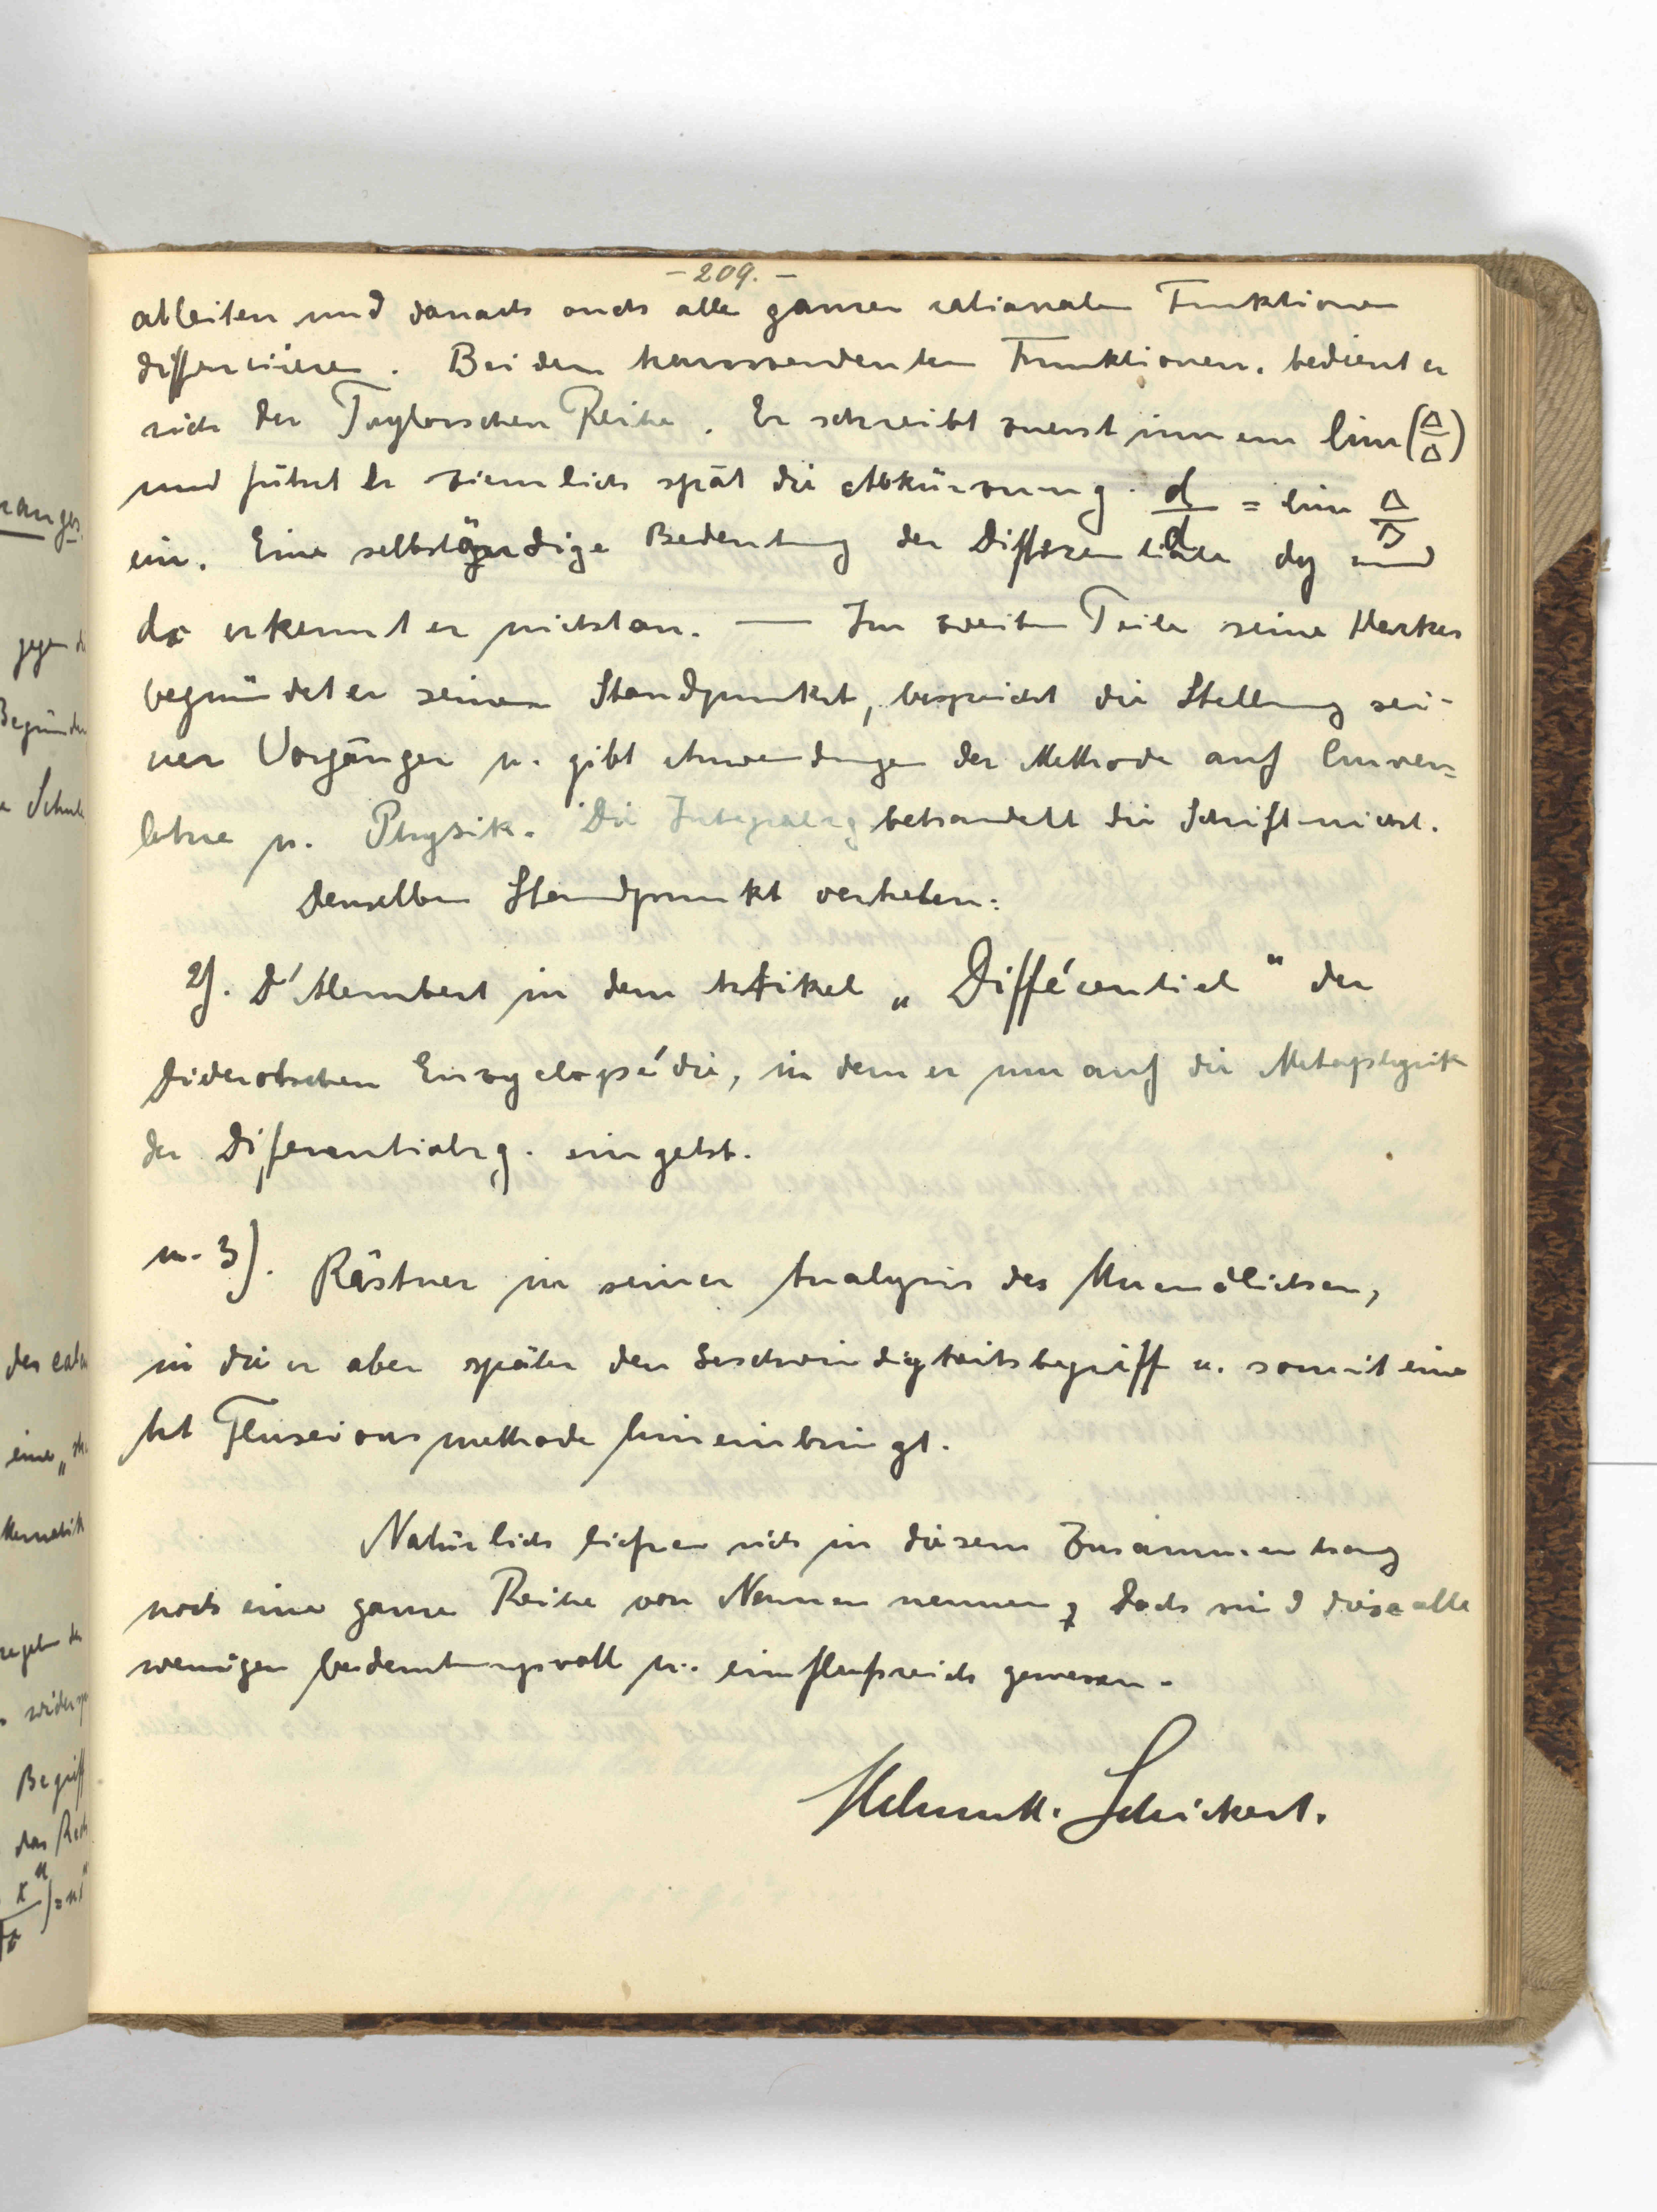 - 209. -
ableiten und danach auch alle ganzen rationalen Funktionen
differenzieren. Bei den transzendenten Funktionen bedient er
sich der Taylorschen Reihe. Er schreibt zuerst immer lim (Δ/Δ)
und führt er ziemlich spät die Abkürzung d/d = lim Δ/Δ
ein. Eine selbständige Bedeutung der Differentiale dy und
dx erkennt er nicht an. — Im zweiten Teile seines Werkes
begründet er seinen Standpunkt, bespricht die Stellung sei-
ner Vorgänger u. gibt Anwendungen der Methode auf Curven=
lehre u. Physik. Die Integralrg behandelt die Schrift nicht.
Denselben Standpunkt vertreten:
2). D'Alembert in dem Artikel „Différentiel" der
Diderotschen Encyclopédie, in dem er nur auf die Metaphysik
der Diferentialrg. eingeht.
u. 3). Kästner in seiner Analysis des Unendlichen,
in die er aber später den Geschwindigkeitsbegriff u. somit eine
Art Fluxionsmethode hineinbringt.
Natürlich ließen sich in diesem Zusammenhang
noch eine ganze Reihe von Namen nennen, doch sind diese alle
weniger bedeutungsvoll u. einflußreich gewesen.
Helmuth Schickert.
gegen di
Begründ
Schul
des cal
eine „
Begriff
das Rech